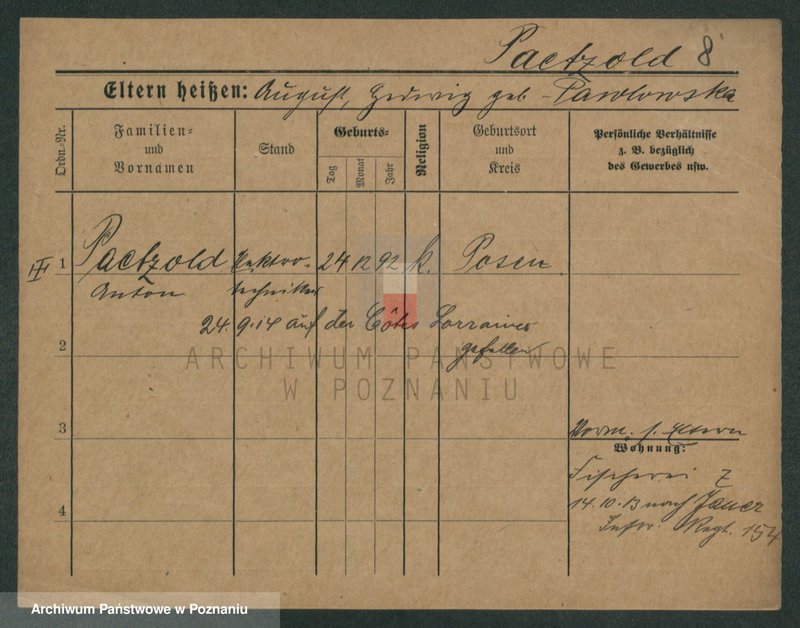 Paetzold 8
Eltern heißen: August, Hedwig geb. Pawlowska
Ordn.-Nr.
Familien=
und
Vornamen
Stand
Geburts=
Tag
Monat
Jahr
Religion
Geburtsort
und
Kreis
Persönliche Verhältnisse
z. B. bezüglich
des Gewerbes usw.
III 1 Paetzold Elektro- 24 12 92 k. Posen
Anton techniker
24. 9. 14 auf der Côtes Lorraines
2 gefallen
ARCHIWUM PAŃSTWOWE
W POZNANIU
3 Vorm. s. Eltern
Wohnung:
Fischerei 7
14. 10. 13 nach Jauer
4 Inftr. Regt. 154
Archiwum Państwowe w Poznaniu